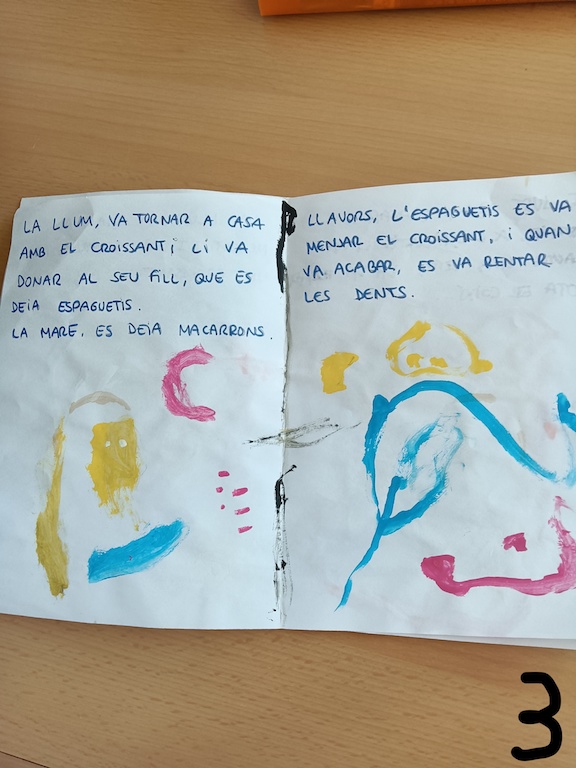 LA LLUM, VA TORNAR A CASA
AMB EL CROISSANT i LI VA
DONAR AL SEU FILL, QUE ES
DEIA ESPAGUETIS.
LA MARE, ES DEIA MACARRONS.
LLAVORS, L'ESPAGUETIS ES VA
MENJAR EL CROISSANT, i QUAN
VA ACABAR, ES VA RENTAR
LES DENTS.
3